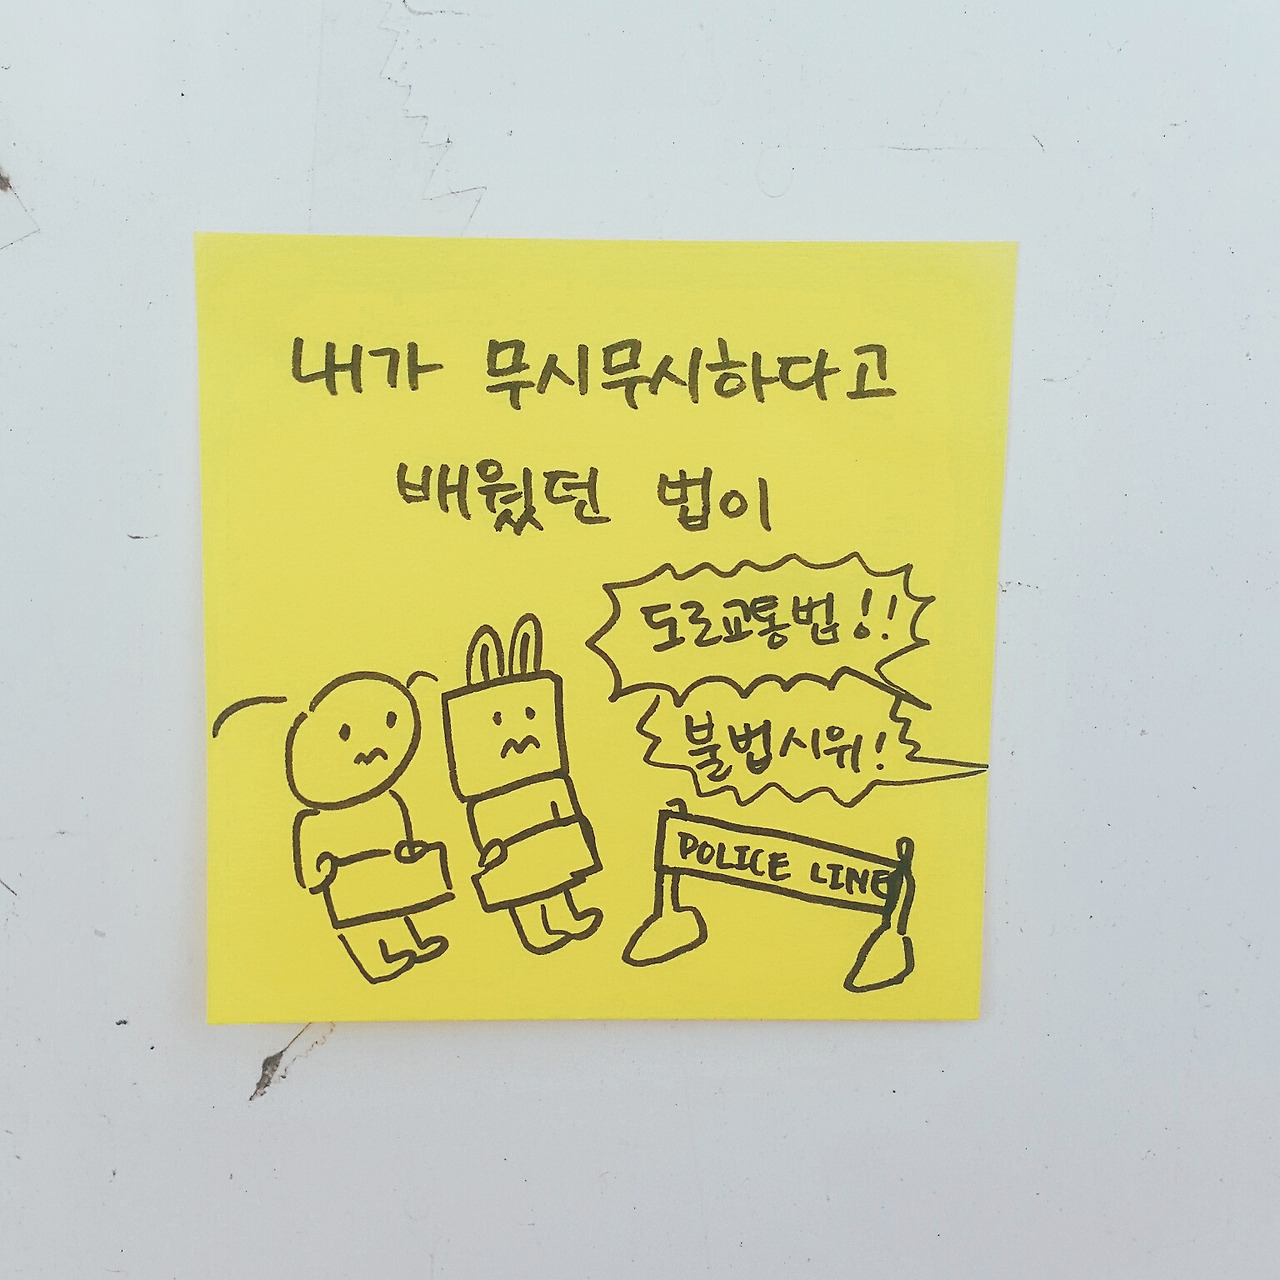 내가 무시무시하다고
배웠던 법이
도로교통법!!
불법시위!
POLICE LINE